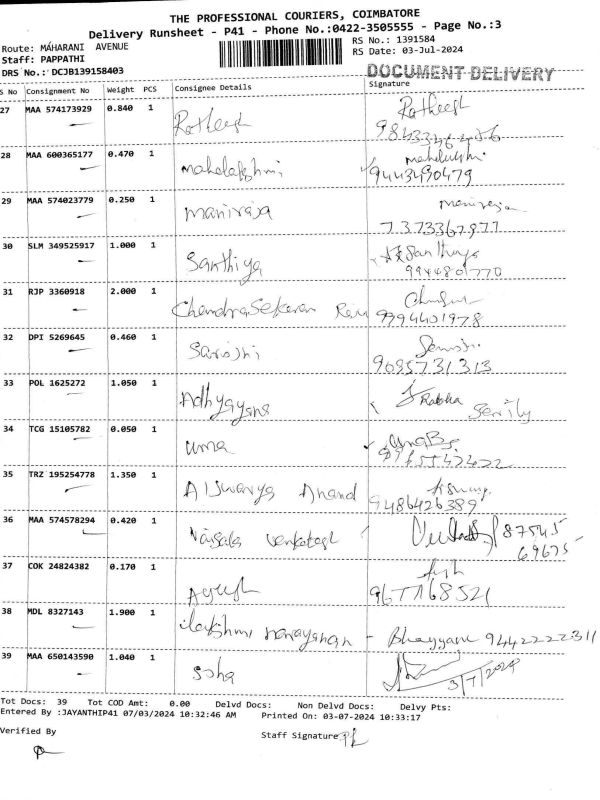 THE PROFESSIONAL COURIERS, COIMBATORE
Delivery Runsheet - P41 - Phone No.:0422-3505555 - Page No.:3
Route: MAHARANI AVENUE
RS No.: 1391584
Staff: PAPPATHI
RS Date: 03-Jul-2024
DRS No.: DCJB139158403
DOCUMENT DELIVERY
S No Consignment No Weight PCS Consignee Details Signature
27 MAA 574173929 0.840 1 Ratheesh Ratheesh
28 MAA 600365177 0.470 1 Mahalakshmi
9443490479
29 MAA 574023779 0.250 1 Maniraja
7373367977
30 SLM 349525917 1.000 1 Santhiya Santhiya
9944801770
31 RJP 3360918 2.000 1 Chendrasekaran
9994401978
32 DPI 5269645 0.460 1 Saroshi
9095731313
33 POL 1625272 1.050 1 Adhyayana
34 TCG 15105782 0.050 1 uma
35 TRZ 195254778 1.350 1 Aiswarya Anand
9486426389
36 MAA 574578294 0.420 1 Venkatesh 87545
69675
37 COK 24824382 0.170 1
38 MDL 8327143 1.900 1 Lakshmi narayanan - 9442222311
39 MAA 650143590 1.040 1 Soha
3/7/2024
Tot Docs: 39 Tot COD Amt: 0.00 Delvd Docs: Non Delvd Docs: Delvy Pts:
Entered By :JAYANTHIP41 07/03/2024 10:32:46 AM Printed On: 03-07-2024 10:33:17
Verified By
Staff Signature